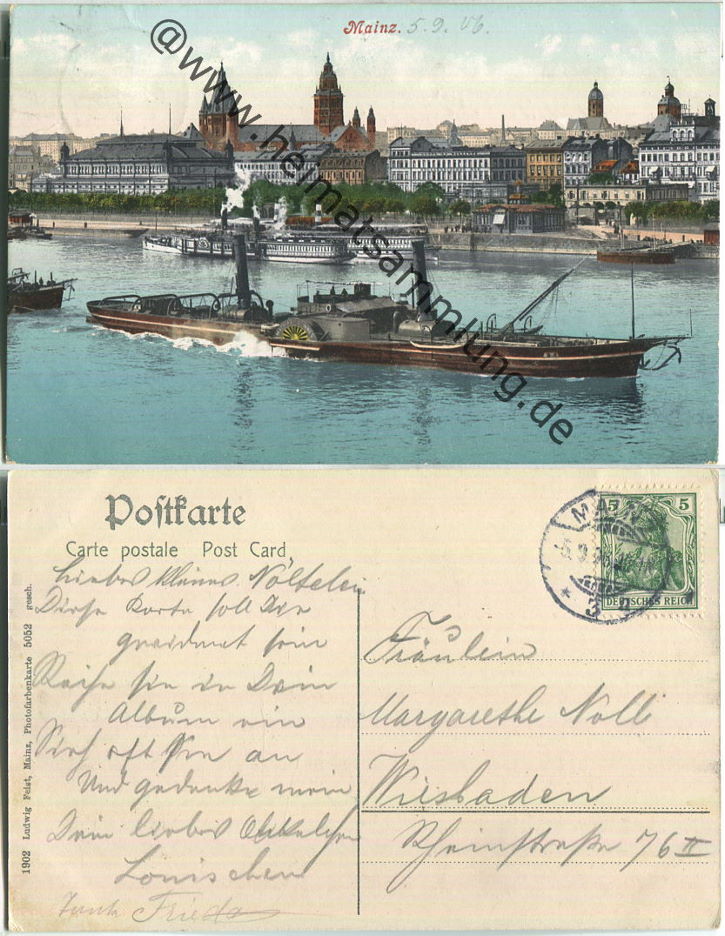 Mainz. 5.9.06.
@www.heimatsammlung.de
Postkarte
Carte postale Post Card
Liebes kleines Nöltelein
Diese Karte soll Dir
gewidmet sein
Reihe sie in Dein
Album ein
Sieh oft sie an
Und gedenke mein
Dein liebes
Louischen
Tante Frieda
Fräulein
Margarethe Nolli
Wiesbaden
Rheinstraße 76 II
MAINZ
5 5
DEUTSCHES REICH
* 3
1902 Ludwig Feist, Mainz, Photofarbenkarte 5052 gesch.